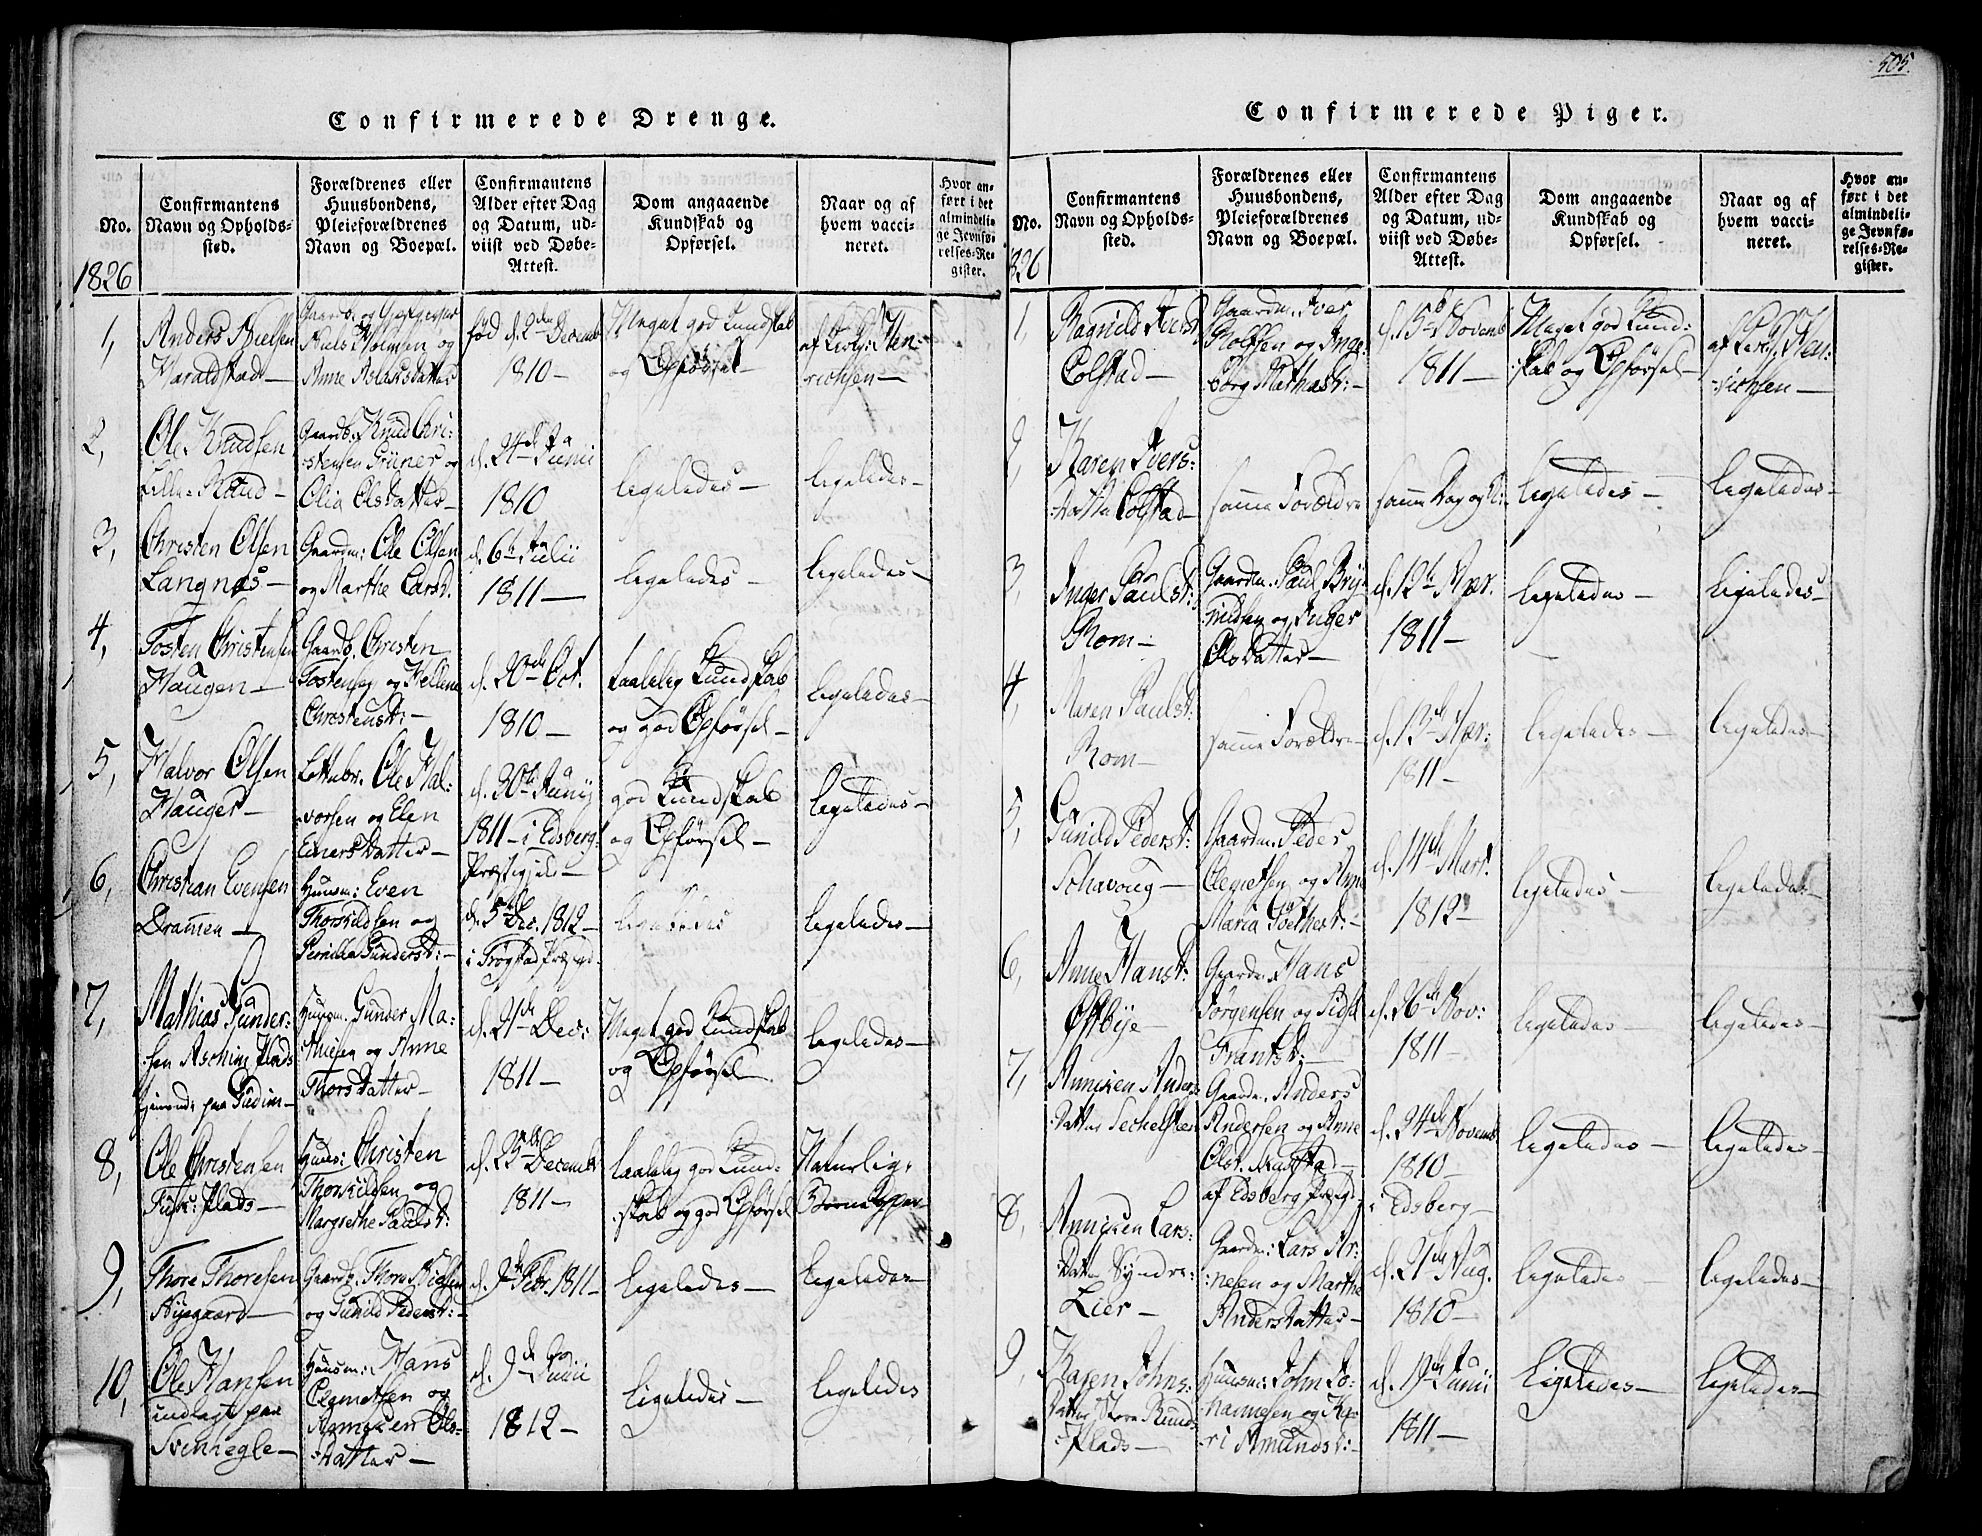 505.
Confirmerede Drenge.
No.
Confirmantens
Navn og Opholds-
sted.
Forældrenes eller
Huusbondens,
Pleieforældrenes
Navn og Boepæl.
Confirmantens
Alder efter Dag
og Datum, ud-
viist ved Døbe-
Attest.
Dom angaaende
Kundskab og
Opførsel.
Naar og af
hvem vacci-
neret.
Hvor an-
ført i det
almindeli-
ge Jevnfø-
relses-Re-
gister.
1826
1,
Anders Nielsen
Haraldstad—
Gaardb. og Gjestgiver
Niels Holmsen og
Anne Aslaksdatter
født d. 2den Decemb
1810—
Meget god Kundskab
og Opførsel—
af Hen-
richsen—
2,
Ole Knudsen
Lille-Rund—
Gaardb. Knud Chri-
stensen Grüner og
Olia Olsdatter—
d. 24de Junii
1810
ligeledes—
ligeledes—
3,
Christen Olsen
Langnæs—
Gaardm: Ole Olsen
og Marthe Larsd.
d. 6te Julii
1811—
ligeledes—
ligeledes—
4,
Tosten Christensen
Haugen—
Gaardb. Christen
Tostensen og Hellene
Christensd:—
d. 20de Oct.
1810—
taalelig Kundskab
og god Opførsel—
ligeledes—
5,
Halvor Olsen
Hauger—
Ole Hal-
vorsen og Elen
Einersdatter—
d. 30te Junij
1811—i Edsberg
Præstegjeld—
god Kundskab
og Opførsel—
ligeledes—
6,
Christian Evensen
Dramen—
Huusm: Even
Thorkildsen og
Pernille Gundersd:—
d. 5te Dec. 1812—
i Trøgstad Præstegd.
ligeledes
ligeledes—
7,
Mathias Gunder-
sen Aschim Plads
paa
Huusm. Gunder Ma-
thiesen og Anne
Thorsdatter—
d. 21de Dec:
1811—
Meget god Kundskab
og Opførsel.
ligeledes—
8,
Ole Christensen
Plads—
Huusm: Christen
Thorkildsen og
Margrethe Paulsd:
d. 25de Decemb
1811—
taalelig god Kund-
skab og god Opførsel
Naturlige
Børnekopper—
9,
Thore Thoresen
Nygaard—
Gaardb. Thore Nielsen
og Gunild Pedersd:—
d. 2den Febr. 1811—
ligeledes—
ligeledes—
10,
Ole Hansen
indlagt paa
Svinnegle—
Huusm: Hans
Clemetsen og
Anniken Ols-
datter—
d. 9de Junii
1812—
ligeledes—
ligeledes
Confirmerede Piger.
No.
Confirmantens
Navn og Opholds-
sted.
Forældrenes eller
Huusbondens,
Pleieforældrenes
Navn og Boepæl.
Confirmantens
Alder efter Dag
og Datum, ud-
viist ved Døbe-
Attest.
Dom angaaende
Kundskab og
Opførsel.
Naar og af
hvem vacci-
neret.
Hvor an-
ført i det
almindeli-
ge Jevnfø-
relses-Re-
gister.
1826
1,
Ragnild Iversd
Colstad—
Gaardm. Iver
Rolfsen og Inge-
borg Mathasd:—
d. 15de Novemb
1811—
Meget god Kund-
skab og Opførsel—
af Hen-
richsen—
2,
Karen Ivers-
datter Colstad—
samme Forældre
samme Dag og
ligeledes—
ligeledes—
3,
Inger Paulsd:
Rom—
Gaardm. Paul Bry-
nildsen og Inger
Olsdatter—
d. 12te Mar.
1811—
ligeledes—
ligeledes—
4,
Maren Paulsd:
Rom—
samme Forældre—
d. 13de Mar:
1811—
ligeledes—
ligeledes—
5,
Gunild Pedersd:
Gaardm. Peder
Clemetsen og Anne
Maria
d. 14de Mart.
1812—
ligeledes—
ligeledes—
6,
Anne Hansd:
Østbye
Gaardm. Hans
Jørgensen og Sidse
Frantsd:—
d. 26de Nov:
1811—
ligeledes—
ligeledes—
7,
Anniken Anders-
datter Sechelsteen
Gaardm. Anders
Andersen og Anne
Olsd.
af Edsberg Præstegd.
d. 24de Novemb
1810—
i Edsberg—
ligeledes—
ligeledes—
8,
Anniken Lars-
datter Syndre-
Lier—
Gaardm: Lars Ar-
nesen og Marthe
Andersdatter—
d. 21de Aug.
1810—
ligeledes
ligeledes—
9,
Karen Johns-
datter Store Rund-
Plads—
Huusm: John Jo-
hannesen og Ka-
ri Amundsd:—
d. 19de Junii
1811—
Ligeledes—
ligeledes—